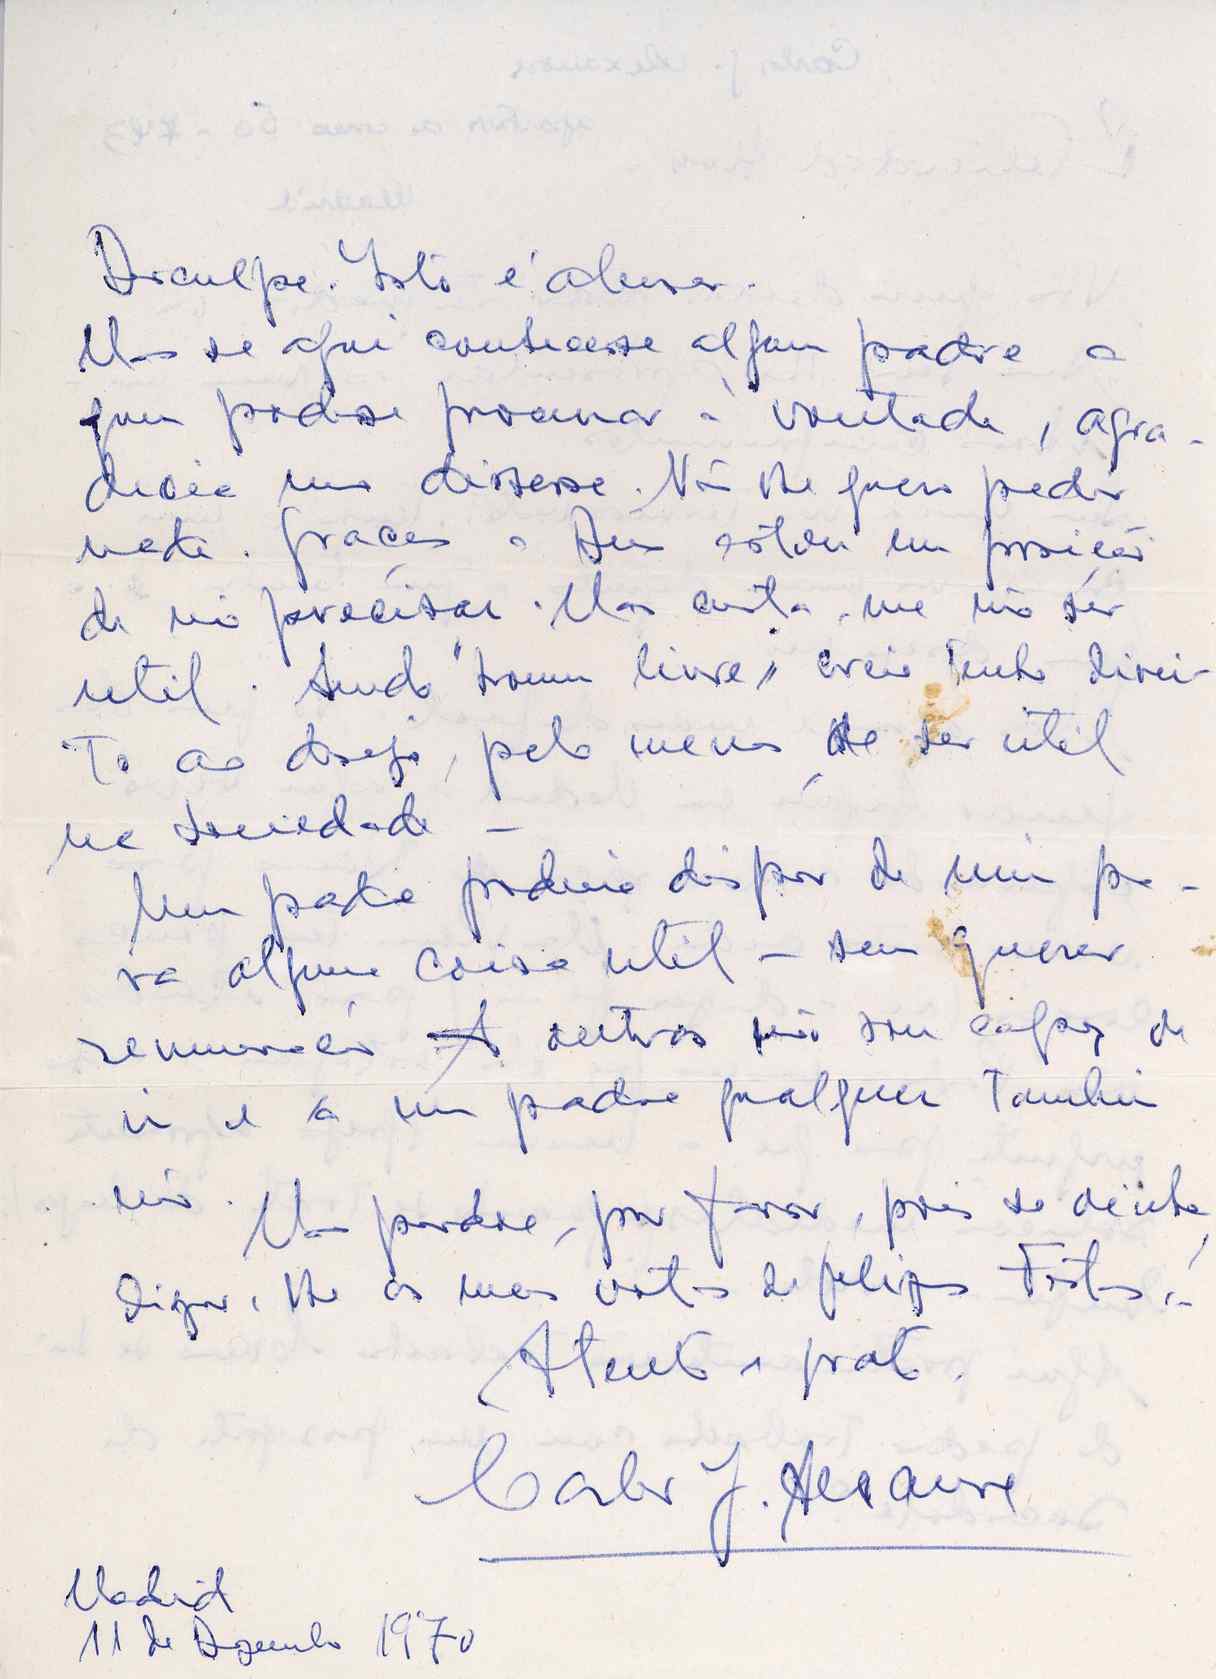 Desculpe. Isto é abusar.
Mas se aqui conhecesse algum padre a
quem pudesse procurar à vontade, agra-
decia me dissesse. Não lhe quero pedir
nada. Graças a Deus estou em posição
de não precisar. Mas custa-me não ser
util. Sendo "homem livre" creio tenho direi-
to ao desejo, pelo menos, de ser util
na sociedade –
Um padre poderia dispor de mim pa-
ra alguma coisa util – sem querer
remuneração A outros não sou capaz de
ir e a um padre qualquer tambem
não. Mas perdoe, por favor, pois só
dizer-lhe os meus votos de felizes Festas,
Atento e grato.
Carlos J. Alexandre
Madrid
11 de Dezembro 1970